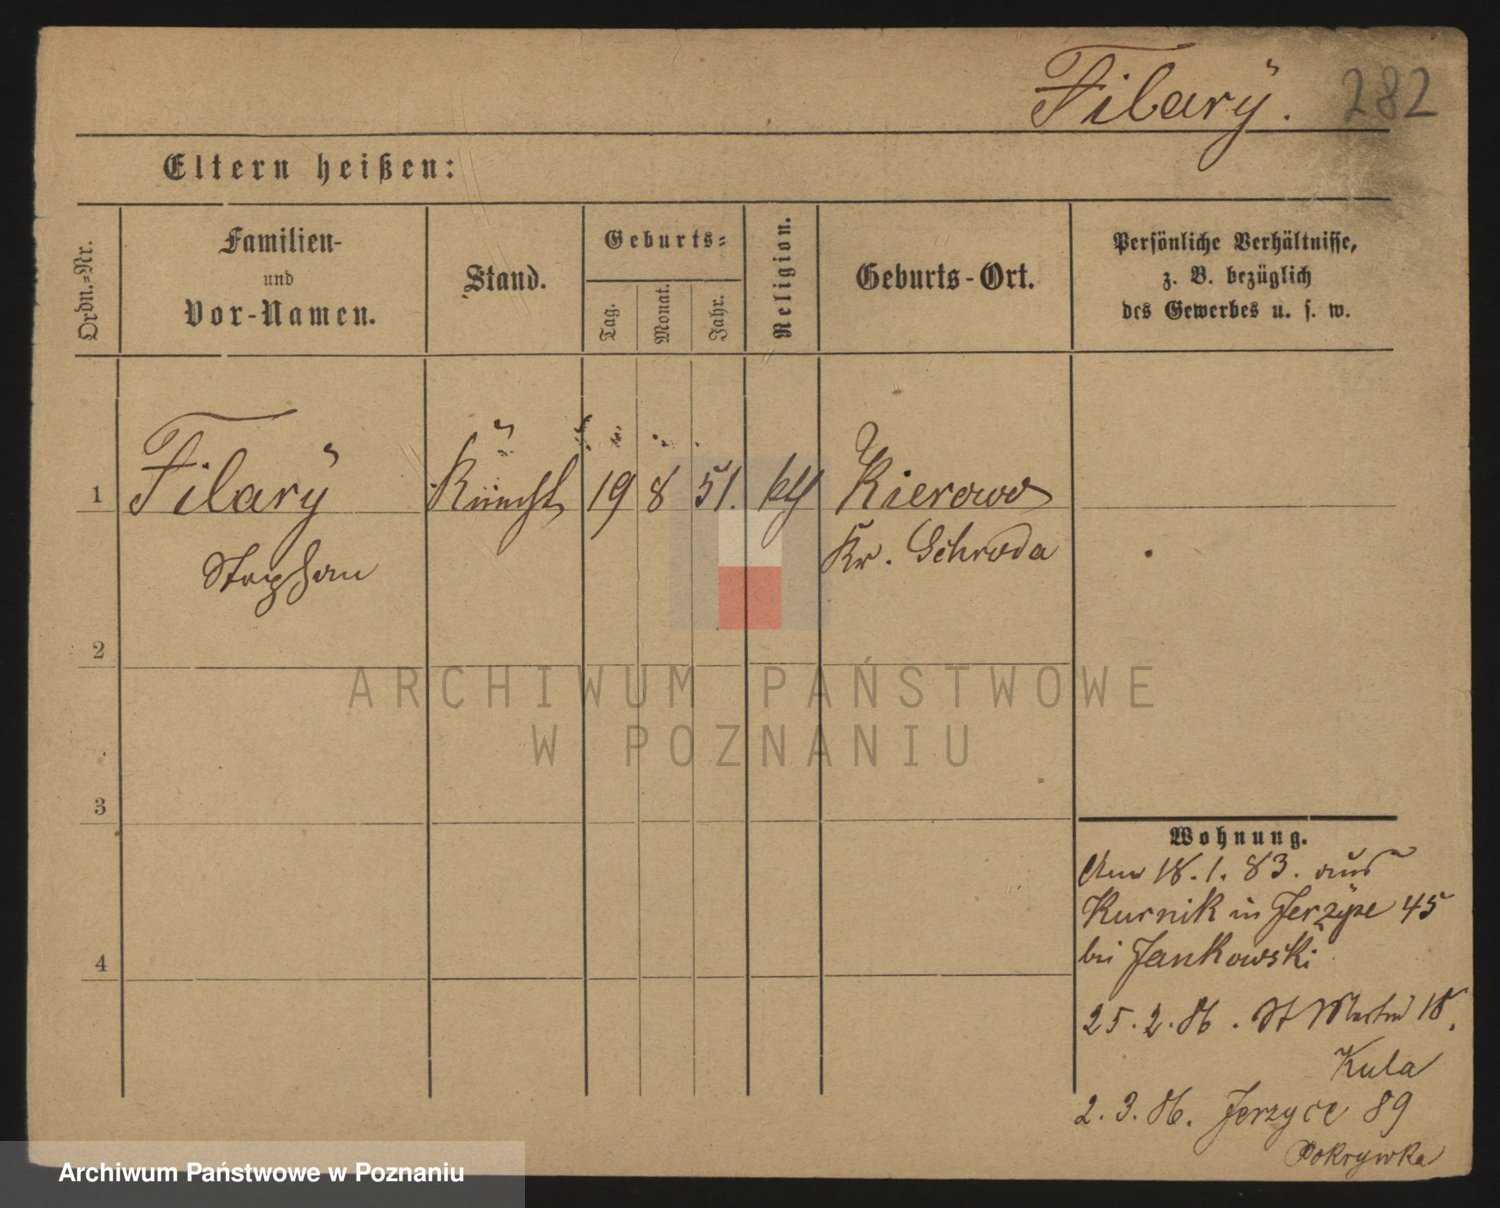 Filarÿ. 282
Eltern heißen:
Ordn.=Nr.
Familien-
und
Vor-Namen.
Stand.
Geburts=
Tag.
Monat.
Jahr.
Religion.
Geburts-Ort.
Persönliche Verhältnisse,
z. B. bezüglich
des Gewerbes u. s. w.
1 Filarÿ 19 8 51. Kierowo
Stephan Kr. Schroda
2
ARCHIWUM PAŃSTWOWE
W POZNANIU
3
Wohnung.
Am 18. 1. 83. aus
Kurnik in Jerzÿce 45
bei Jankowski
4
25. 2. 86. St Martin 18.
Kula
2. 3. 86. Jerzyce 89
Pokrywka
Archiwum Państwowe w Poznaniu